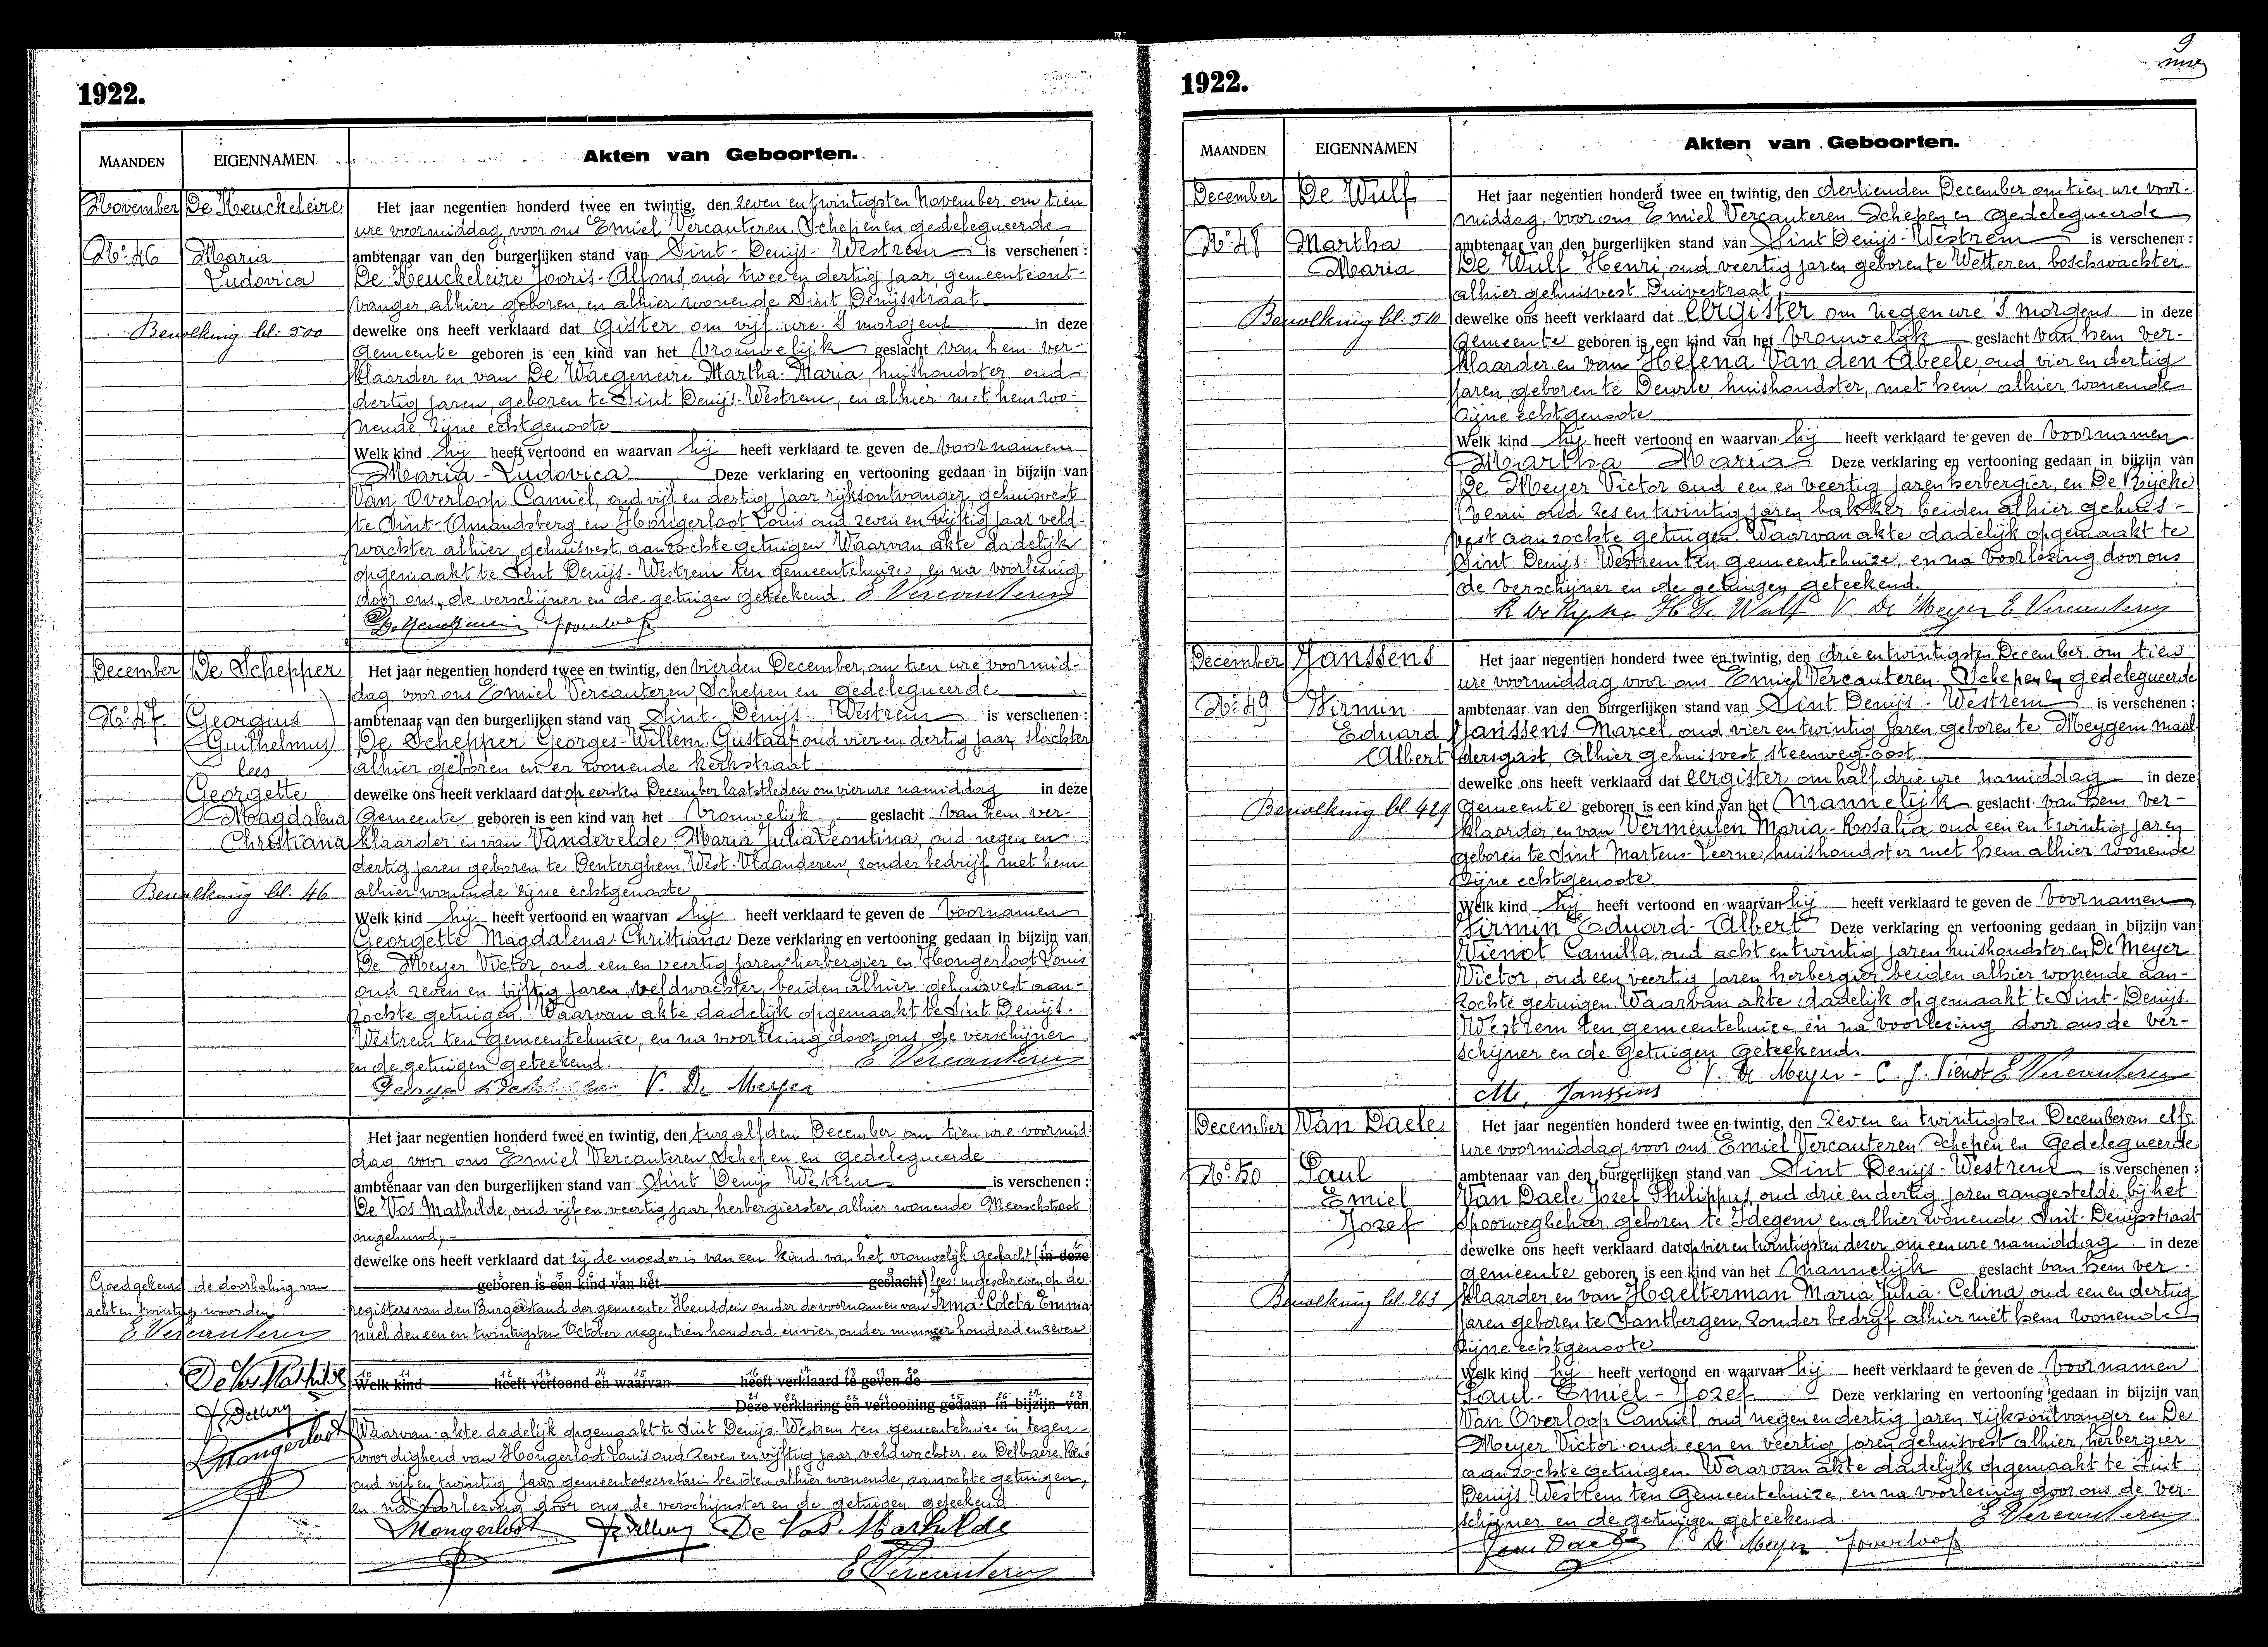 1922.
MAANDEN
EIGENNAMEN
Akten van Geboorten.
November
De Keuckeleire
No: 46
Maria
Ludovica
Bevolking bl. 500
Het jaar negentien honderd twee en twintig, den zeven en twintigsten November om tien
ure voormiddag, voor ons Emiel Vercauteren Schepen en gedelegueerde
ambtenaar van den burgerlijken stand van Sint-Denijs-Westrem is verschenen :
De Keuckeleire Jooris-Alfons, oud twee en dertig jaar, gemeenteont-
vanger alhier geboren, en alhier wonende Sint Denijsstraat
dewelke ons heeft verklaard dat gister om vijf ure 's morgens in deze
Gemeente geboren is een kind van het vrouwelijk geslacht van hem ver-
klaarder en van De Waegeneire Martha-Maria, huishoudster, oud
dertig jaren, geboren te Sint Denijs-Westrem, en alhier met hem wo-
nende, zijne echtgenoote
Welk kind hij heeft vertoond en waarvan hij heeft verklaard te geven de voornamen
Maria-Ludovica Deze verklaring en vertooning gedaan in bijzijn van
Van Overloop Camiel, oud vijf en dertig jaar rijksontvanger, gehuisvest
te Sint-Amandsberg en Hongerloot Louis oud zeven en vijftig jaar veld-
wachter alhier gehuisvest, aanzochte getuigen. Waarvan akte dadelijk
opgemaakt te Sint Denijs-Westrem ten gemeentehuize, en na voorlezing
door ons, de verschijner en de getuigen geteekend. E Vercauteren
December
De Schepper
No: 47
Georgius
Guilhelmus
lees
Georgette
Magdalena
Christiana
Bevolking bl. 46
Het jaar negentien honderd twee en twintig, den vierden December, om tien ure voormid-
dag voor ons Emiel Vercauteren Schepen en gedelegueerde
ambtenaar van den burgerlijken stand van Sint-Denijs-Westrem is verschenen :
De Schepper Georges-Willem-Gustaaf oud vier en dertig jaar, slachter
alhier geboren en er wonende Kerkstraat
dewelke ons heeft verklaard dat op eersten December laatstleden om vier ure namiddag in deze
Gemeente geboren is een kind van het vrouwelijk geslacht van hem ver-
klaarder en van Vandevelde Maria Julia Leontina, oud negen en
dertig jaren geboren te Denterghem West-Vlaanderen, zonder bedrijf met hem
alhier wonende zijne echtgenoote
Welk kind hij heeft vertoond en waarvan hij heeft verklaard te geven de voornamen
Georgette Magdalena Christiana Deze verklaring en vertooning gedaan in bijzijn van
De Meyer Victor, oud een en veertig jaren herbergier, en Hongerloot Louis
oud zeven en vijftig jaren, veldwachter, beiden alhier gehuisvest aan-
zochte getuigen. Waarvan akte dadelijk opgemaakt te Sint Denijs-
Westrem ten gemeentehuize, en na voorlezing door ons, de verschijner
en de getuigen geteekend. E Vercauteren
V. De Meyer
Goedgekeurd de doorhaling van
acht en twintig woorden
E Vercauteren
De Vos Mathilde
Hongerloot
Het jaar negentien honderd twee en twintig, den twaalfden December om tien ure voormid-
dag, voor ons Emiel Vercauteren Schepen en gedelegueerde
ambtenaar van den burgerlijken stand van Sint Denijs Westrem is verschenen :
De Vos Mathilde, oud vijf en veertig jaar, herbergierster, alhier wonende Meerschstraat
ongehuwd,
dewelke ons heeft verklaard dat zij de moeder is van een kind van het vrouwelijk geslacht (in deze
geboren is een kind van het geslacht) lees ingeschreven op de
registers van den Burgerstand der gemeente Heusden onder de voornamen van Irma-Coleta Emma
den een en twintigsten October negentien honderd en vier, onder nummer honderd en zeven
Welk kind heeft vertoond en waarvan heeft verklaard te geven de
Deze verklaring en vertooning gedaan in bijzijn van
Waarvan akte dadelijk opgemaakt te Sint Denijs-Westrem ten gemeentehuize in tegen-
woordigheid van Hongerloot Louis oud zeven en vijftig jaar, veldwachter en Delbaere René
oud vijf en twintig jaar gemeentesecretaris beiden alhier wonende, aanzochte getuigen,
en na voorlezing door ons de verschijnster en de getuigen geteekend.
Hongerloot De Vos Mathilde
E Vercauteren
9
1922.
MAANDEN
EIGENNAMEN
Akten van Geboorten.
December
De Wulf
No: 48
Martha
Maria
Bevolking bl. 510
Het jaar negentien honderd twee en twintig, den dertienden December om tien ure voor-
middag, voor ons Emiel Vercauteren Schepen en gedelegueerde
ambtenaar van den burgerlijken stand van Sint Denijs-Westrem is verschenen :
De Wulf Henri, oud veertig jaren geboren te Wetteren, boschwachter
alhier gehuisvest Duivestraat
dewelke ons heeft verklaard dat eergister om negen ure 's morgens in deze
Gemeente geboren is een kind van het vrouwelijk geslacht van hem ver-
klaarder en van Helena Van den Abeele, oud vier en dertig
jaren, geboren te Deurle, huishoudster, met hem alhier wonende
zijne echtgenoote
Welk kind hij heeft vertoond en waarvan hij heeft verklaard te geven de voornamen
Martha Maria Deze verklaring en vertooning gedaan in bijzijn van
De Meyer Victor oud een en veertig jaren herbergier, en De Rijcke
Remi oud zes en twintig jaren bakker beiden alhier gehuis-
vest aanzochte getuigen. Waarvan akte dadelijk opgemaakt te
Sint Denijs-Westrem ten gemeentehuize, en na voorlezing door ons
de verschijner en de getuigen geteekend.
R De Rycke H De Wulf V. De Meyer E. Vercauteren
December
Janssens
No: 49
Firmin
Eduard
Albert
Bevolking bl 429
Het jaar negentien honderd twee en twintig, den drie en twintigsten December om tien
ure voormiddag voor ons Emiel Vercauteren Schepen en gedelegueerde
ambtenaar van den burgerlijken stand van Sint Denijs-Westrem is verschenen :
Janssens Marcel, oud vier en twintig jaren, geboren te Meygem maal-
dersgast, alhier gehuisvest, steenweg-oost
dewelke ons heeft verklaard dat eergister om half drie ure namiddag in deze
Gemeente geboren is een kind van het Mannelijk geslacht van hem ver-
klaarder, en van Vermeulen Maria-Rosalia oud een en twintig jaren
geboren te Sint Martens-Leerne, huishoudster met hem alhier wonende
zijne echtgenoote
Welk kind hij heeft vertoond en waarvan hij heeft verklaard te geven de voornamen
Firmin Eduard-Albert Deze verklaring en vertooning gedaan in bijzijn van
Vienot Camilla, oud acht en twintig jaren huishoudster en De Meyer
Victor, oud een veertig jaren herbergier beiden alhier wonende aan-
zochte getuigen. Waarvan akte dadelijk opgemaakt te Sint-Denijs-
Westrem ten gemeentehuize, en na voorlezing door ons de ver-
schijner en de getuigen geteekend.
V. De Meyer - C. J. Vienot E Vercauteren
M. Janssens
December
Van Daele
No: 50
Paul
Emiel
Jozef
Bevolking bl. 263
Het jaar negentien honderd twee en twintig, den zeven en twintigsten December om elf
ure voormiddag voor ons Emiel Vercauteren Schepen en Gedelegueerde
ambtenaar van den burgerlijken stand van Sint Denijs-Westrem is verschenen :
Van Daele Jozef Philippus, oud drie en dertig jaren aangestelde bij het
spoorwegbeheer geboren te Idegem, en alhier wonende Sint-Denijsstraat
dewelke ons heeft verklaard dat op vier en twintigsten dezer om een ure namiddag in deze
gemeente geboren is een kind van het Mannelijk geslacht van hem ver-
klaarder, en van Haelterman Maria Julia-Celina, oud een en dertig
jaren geboren te Santbergen, zonder bedrijf alhier met hem wonende
zijne echtgenoote
Welk kind hij heeft vertoond en waarvan hij heeft verklaard te geven de voornamen
Paul-Emiel-Jozef Deze verklaring en vertooning gedaan in bijzijn van
Van Overloop Camiel, oud negen en dertig jaren rijksontvanger en De
Meyer Victor oud een en veertig jaren gehuisvest alhier, herbergier
aanzochte getuigen. Waarvan akte dadelijk opgemaakt te Sint
Denijs Westrem ten Gemeentehuize, en na voorlezing door ons de ver-
schijner en de getuigen geteekend. E Vercauteren
Van Daele V. De Meyer